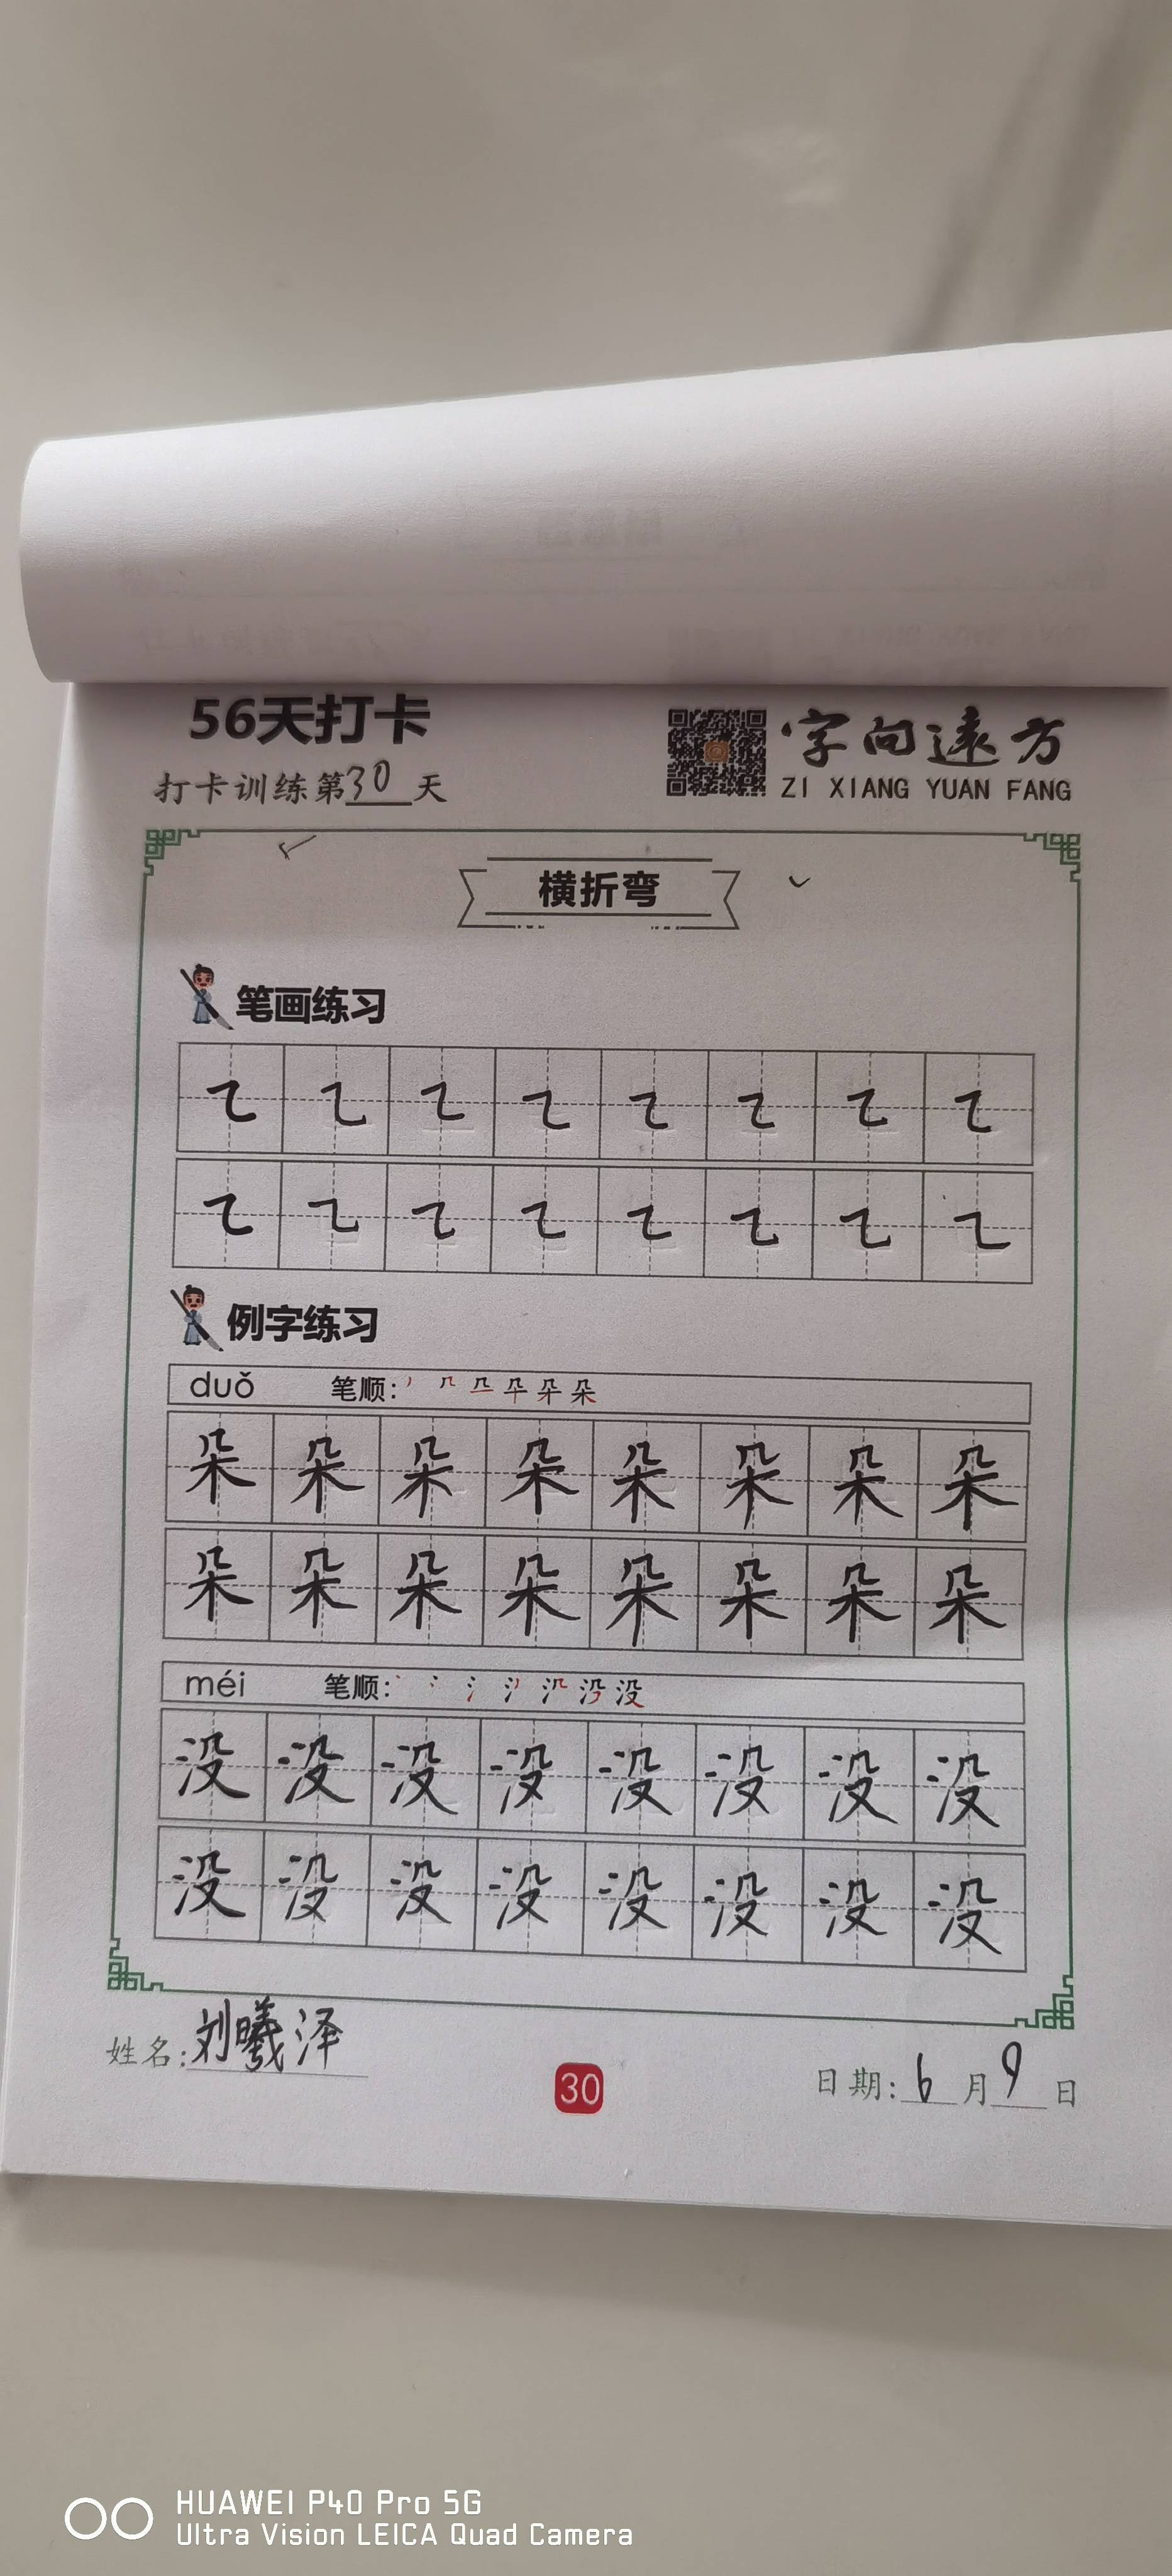 56天打卡
字向远方
打卡训练第30天
ZI XIANG YUAN FANG
横折弯
笔画练习
例字练习
duǒ 笔顺:
朵 朵 朵 朵 朵 朵 朵 朵
朵 朵 朵 朵 朵 朵 朵 朵
méi 笔顺:
没 没 没 没 没 没 没 没
没 没 没 没 没 没 没 没
姓名:刘曦泽
30
日期:6月9日
HUAWEI P40 Pro 5G
Ultra Vision LEICA Quad Camera